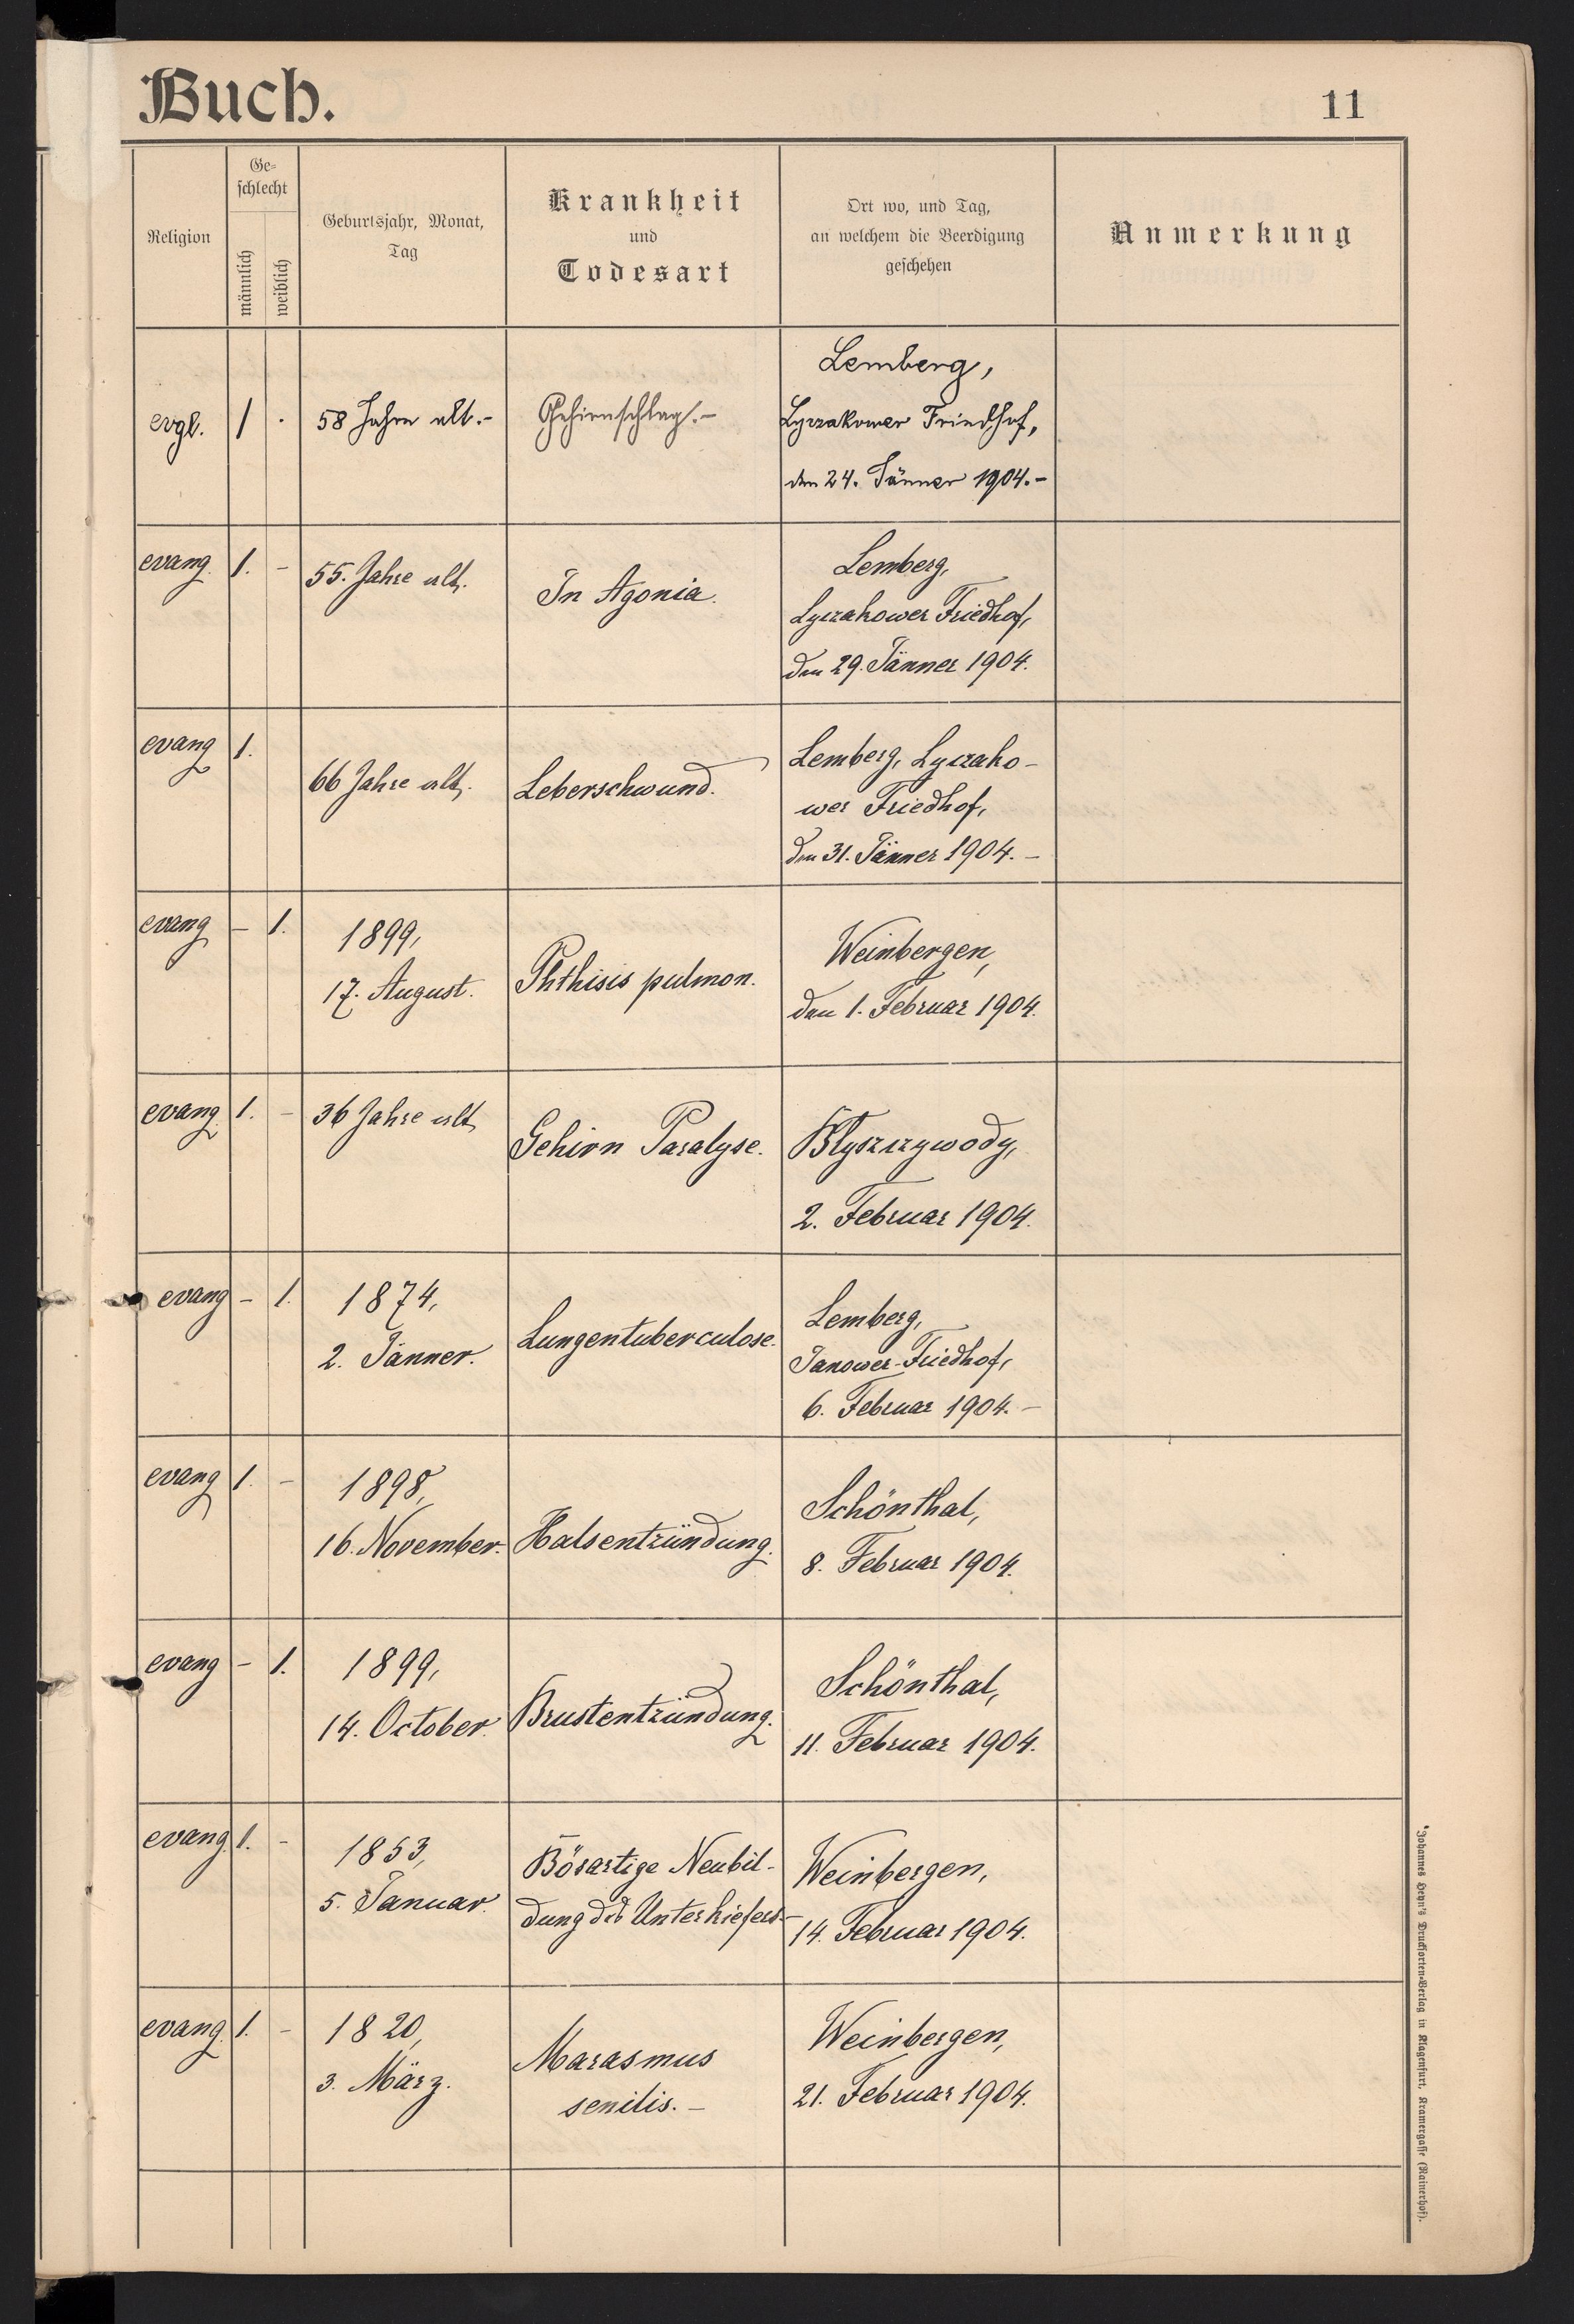 Buch.
11
Religion
Ge-
schlecht
männlich
weiblich
Geburtsjahr, Monat,
Tag
Krankheit
und
Todesart
Ort wo, und Tag,
an welchem die Beerdigung
geschehen
Anmerkung
evgl. 1 · 58 Jahre alt.- Gehirnschlag.-
Lemberg,
Lyczakower Friedhof,
den 24. Jänner 1904.-
evang. 1. - 55. Jahre alt. In Agonia.
Lemberg,
Lyczakower Friedhof,
den 29. Jänner 1904.
evang 1. 66 Jahre alt. Leberschwund.
Lemberg, Lyczako-
wer Friedhof,
den 31. Jänner 1904. -
evang - 1. 1899,
17. August. Phthisis pulmon.
Weinbergen,
den 1. Februar 1904.
evang. 1. - 36 Jahre alt Gehirn Paralyse.
Blyszczywody,
2. Februar 1904.
evang - 1. 1874,
2. Jänner. Lungentuberculose.
Lemberg,
Janower-Friedhof,
6. Februar 1904. -
evang 1. - 1898,
16. November. Halsentzündung.
Schönthal,
8. Februar 1904.
evang - 1. 1899,
14. October. Brustentzündung.
Schönthal,
11. Februar 1904.
evang. 1. - 1853,
5. Januar.
Bösartige Neubil-
dung des Unterkiefers-
Weinbergen,
14. Februar 1904.
evang. 1. - 1820,
3. März.
Marasmus
senilis. -
Weinbergen,
21. Februar 1904.
Johannes Heyn's Drucksorten-Verlag in Klagenfurt, Kramergasse (Rainerhof).